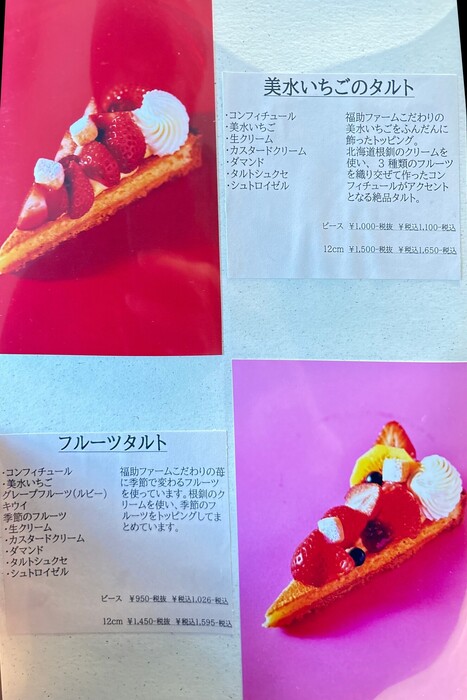 美水いちごのタルト
・コンフィチュール
・美水いちご
・生クリーム
・カスタードクリーム
・ダマンド
・タルトシュクセ
・シュトロイゼル
福助ファームこだわりの
美水いちごをふんだんに
飾ったトッピング。
北海道根釧のクリームを
使い、3種類のフルーツ
を織り交ぜて作ったコン
フィチュールがアクセント
となる絶品タルト。
ピース ¥1,000-税抜 ¥税込1,100-税込
12cm ¥1,500-税抜 ¥税込1,650-税込
フルーツタルト
・コンフィチュール
・美水いちご
グレープフルーツ(ルビー)
キウイ
季節のフルーツ
・生クリーム
・カスタードクリーム
・ダマンド
・タルトシュクセ
・シュトロイゼル
福助ファームこだわりの苺
に季節で変わるフルーツ
を使っています。根釧のク
リームを使い、季節のフ
ルーツをトッピングしてま
とめています。
ピース ¥950-税抜 ¥税込1,026-税込
12cm ¥1,450-税抜 ¥税込1,595-税込